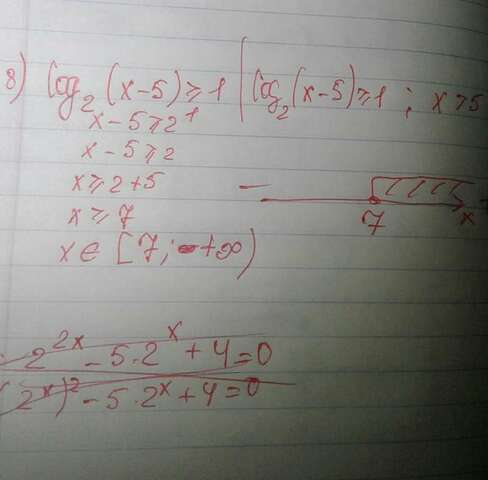 8) log₂(x-5) ≥ 1 | log₂(x-5) ≥ 1 ; x > 5
x-5 ≥ 2¹
x-5 ≥ 2
x ≥ 2+5
x ≥ 7
7 x
x ∈ [7; +∞)
2^2x - 5·2^x + 4 = 0
(2^x)² - 5·2^x + 4 = 0